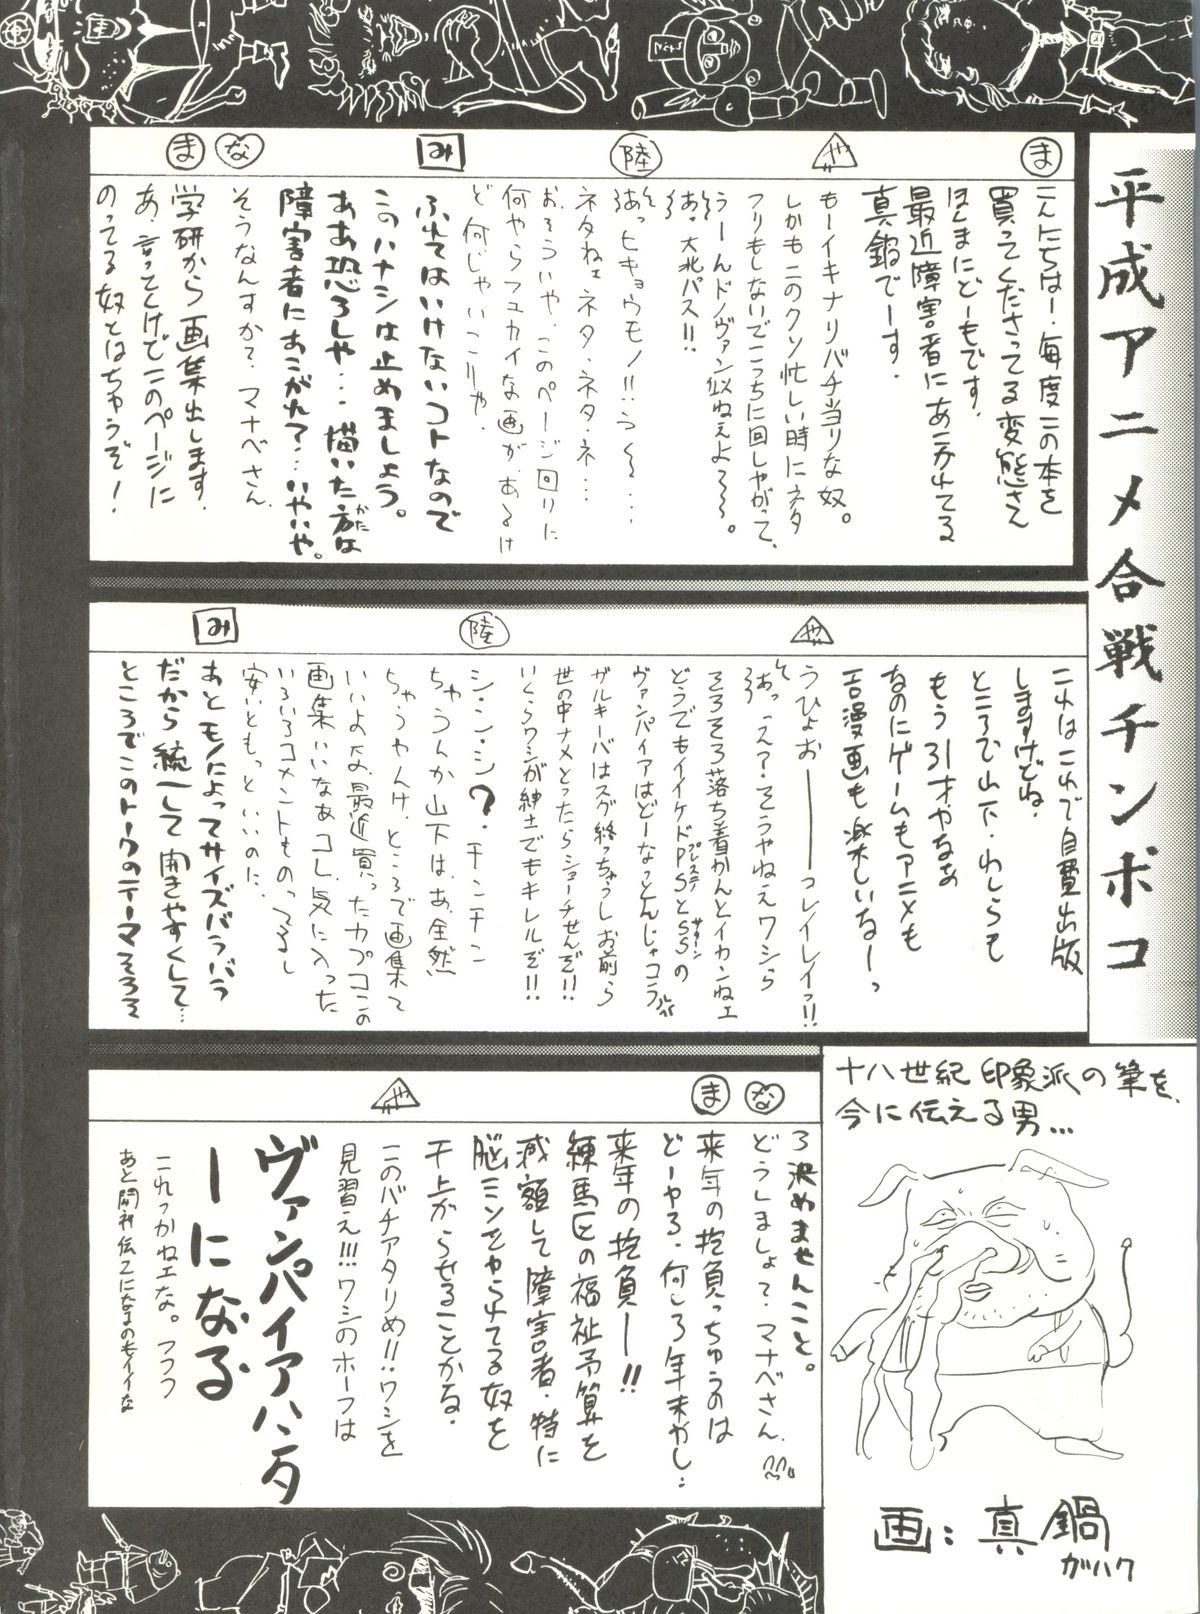 平成アニメ合戦チンポコ
ま
こんにちはー、毎度この本を
買ってくださってる変態さん
ほんまにどーもです。
最近障害者にあこがれてる
真鍋でーす。
や
もーイキナリバチ当りな奴。
しかもこのクソ忙しい時にネタ
フリもしないでこっちに回しやがって、
うーんドノヴァン似ねぇよ〜〜。
あっ大北パス!!
陸
あっヒキョウモノ!!うく〜…
ネタねェネタ、ネタ、ネ…
お、そういや、このページ回りに
何やらフユカイな画が、あるけ
ど何じゃいこりゃ。
み
ふれてはいけないコトなので
このハナシは止めましょう。
ああ恐ろしや… 描いた方は
かた
障害者にあこがれて…いやいや。
な
そうなんすか?マナベさん
ま
学研から画集出します。
あ、言ってくけどこのページに
のってる奴とはちゃうぞ!
これはこれで自費出版
しますけどね。
ところで山下、わしらも
もう31才やなあ
なのにゲームもアニメも
エロ漫画も楽しいなーっ
や
うひょおーーーコレイレイっ!!
あっ え?そうやねえワシら
そろそろ落ち着かんとイカンねェ
どうでもイイケドPSとSSの
プレステ
サターン
ヴァンパイアはどーなっとんじゃコラ
ザルキーバはスグ終っちゃうしお前ら
世の中ナメとったらショーチせんぞ!!
いくらワシが紳士でもキレルぞ!!
陸
シ・ン・シ? チンチン
ちゃうんか山下は、あ、全然
ちゃうやんけ、ところで画集て
いいよな、最近買ったカプコンの
画集いいなぁコレ、気に入った
いろいろコメントものってるし
安いともっといいのに、
み
あとモノによってサイズバラバラ
だから統一して開きやすくして…
ところでこのトークのテーマそろそ
ろ決めませんこと。
な
どうしましょて、マナベさん
ま
来年の抱負っちゅうのは
どーやろ、何しろ年末やし…
来年の抱負ー!!
練馬区の福祉予算を
減額して障害者、特に
脳ミソをやられてる奴を
干上がらせることかな、
や
このバチアタリめ!!ワシを
見習え!!!ワシのホーフは
ヴァンパイアハンタ
ーになる
これっかねェな。フフフ
あと開祖伝Zになるのもイイな
十八世紀印象派の筆を、
今に伝える男…
画:真鍋
ガハク